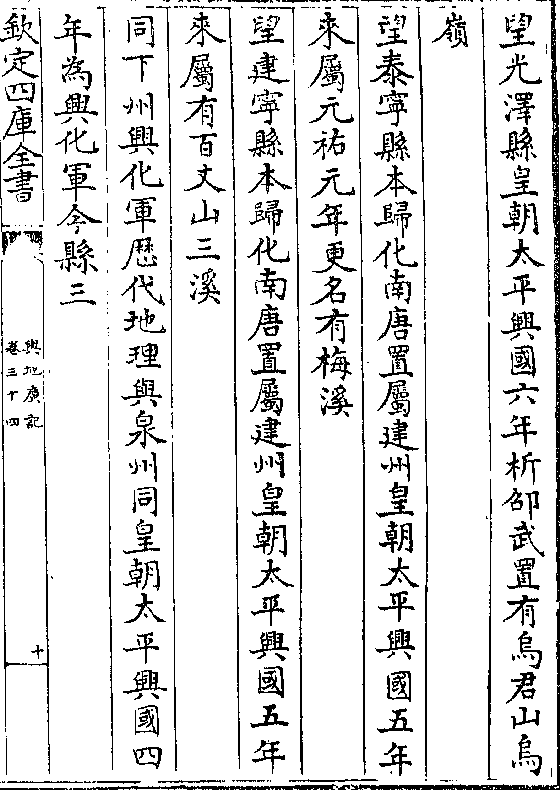 望光澤縣皇朝太平興國六年析邵武置有烏君山烏
嶺
望泰寧縣本歸化南唐置屬建州皇朝太平興國五年
來屬元祐元年更名有梅溪
望建寧縣本歸化南唐置屬建州皇朝太平興國五年
來屬有百丈山三溪
同下州興化軍歷代地理與泉州同皇朝太平興國四
年為興化軍今縣三
欽定四庫全書
輿地廣記
卷三十四
十